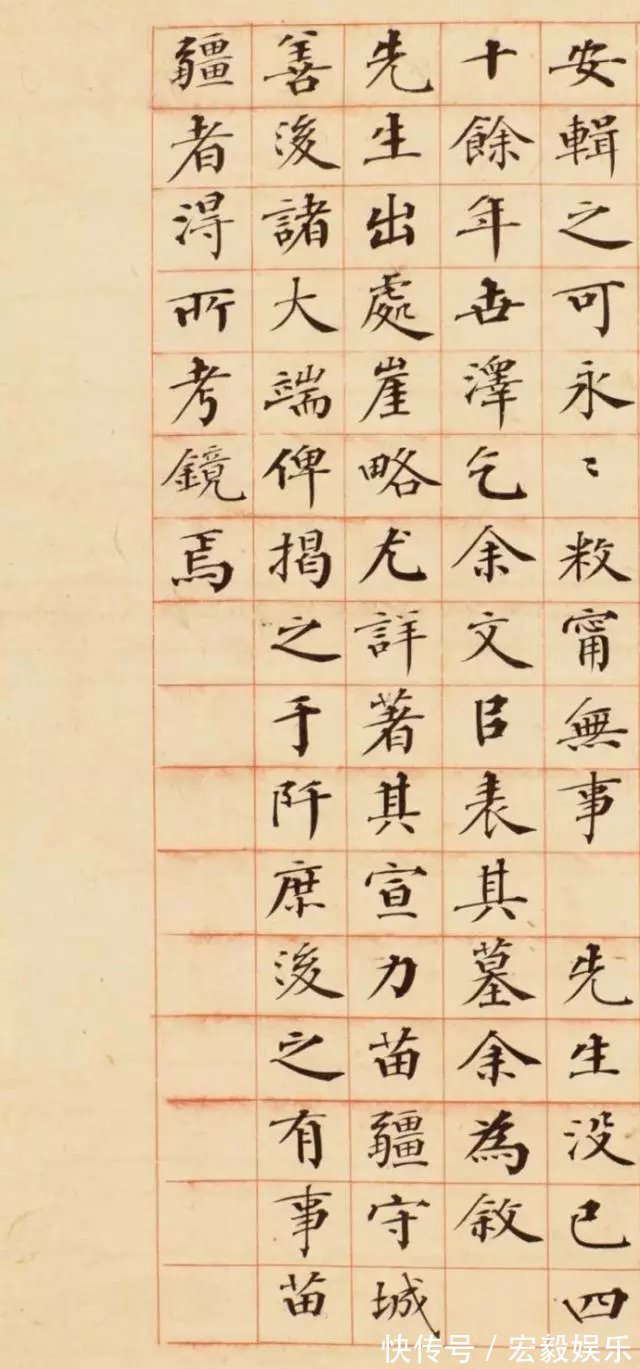 安輯之可永〻敉甯無事 先生没已四
十餘年世澤乞余文㠯表其墓余為敘
先生出處崖略尤詳著其宣力苗疆守城
善後諸大端俾揭之于阡庶後之有事苗
疆者得所考鏡焉
快传号 / 宏毅娱乐